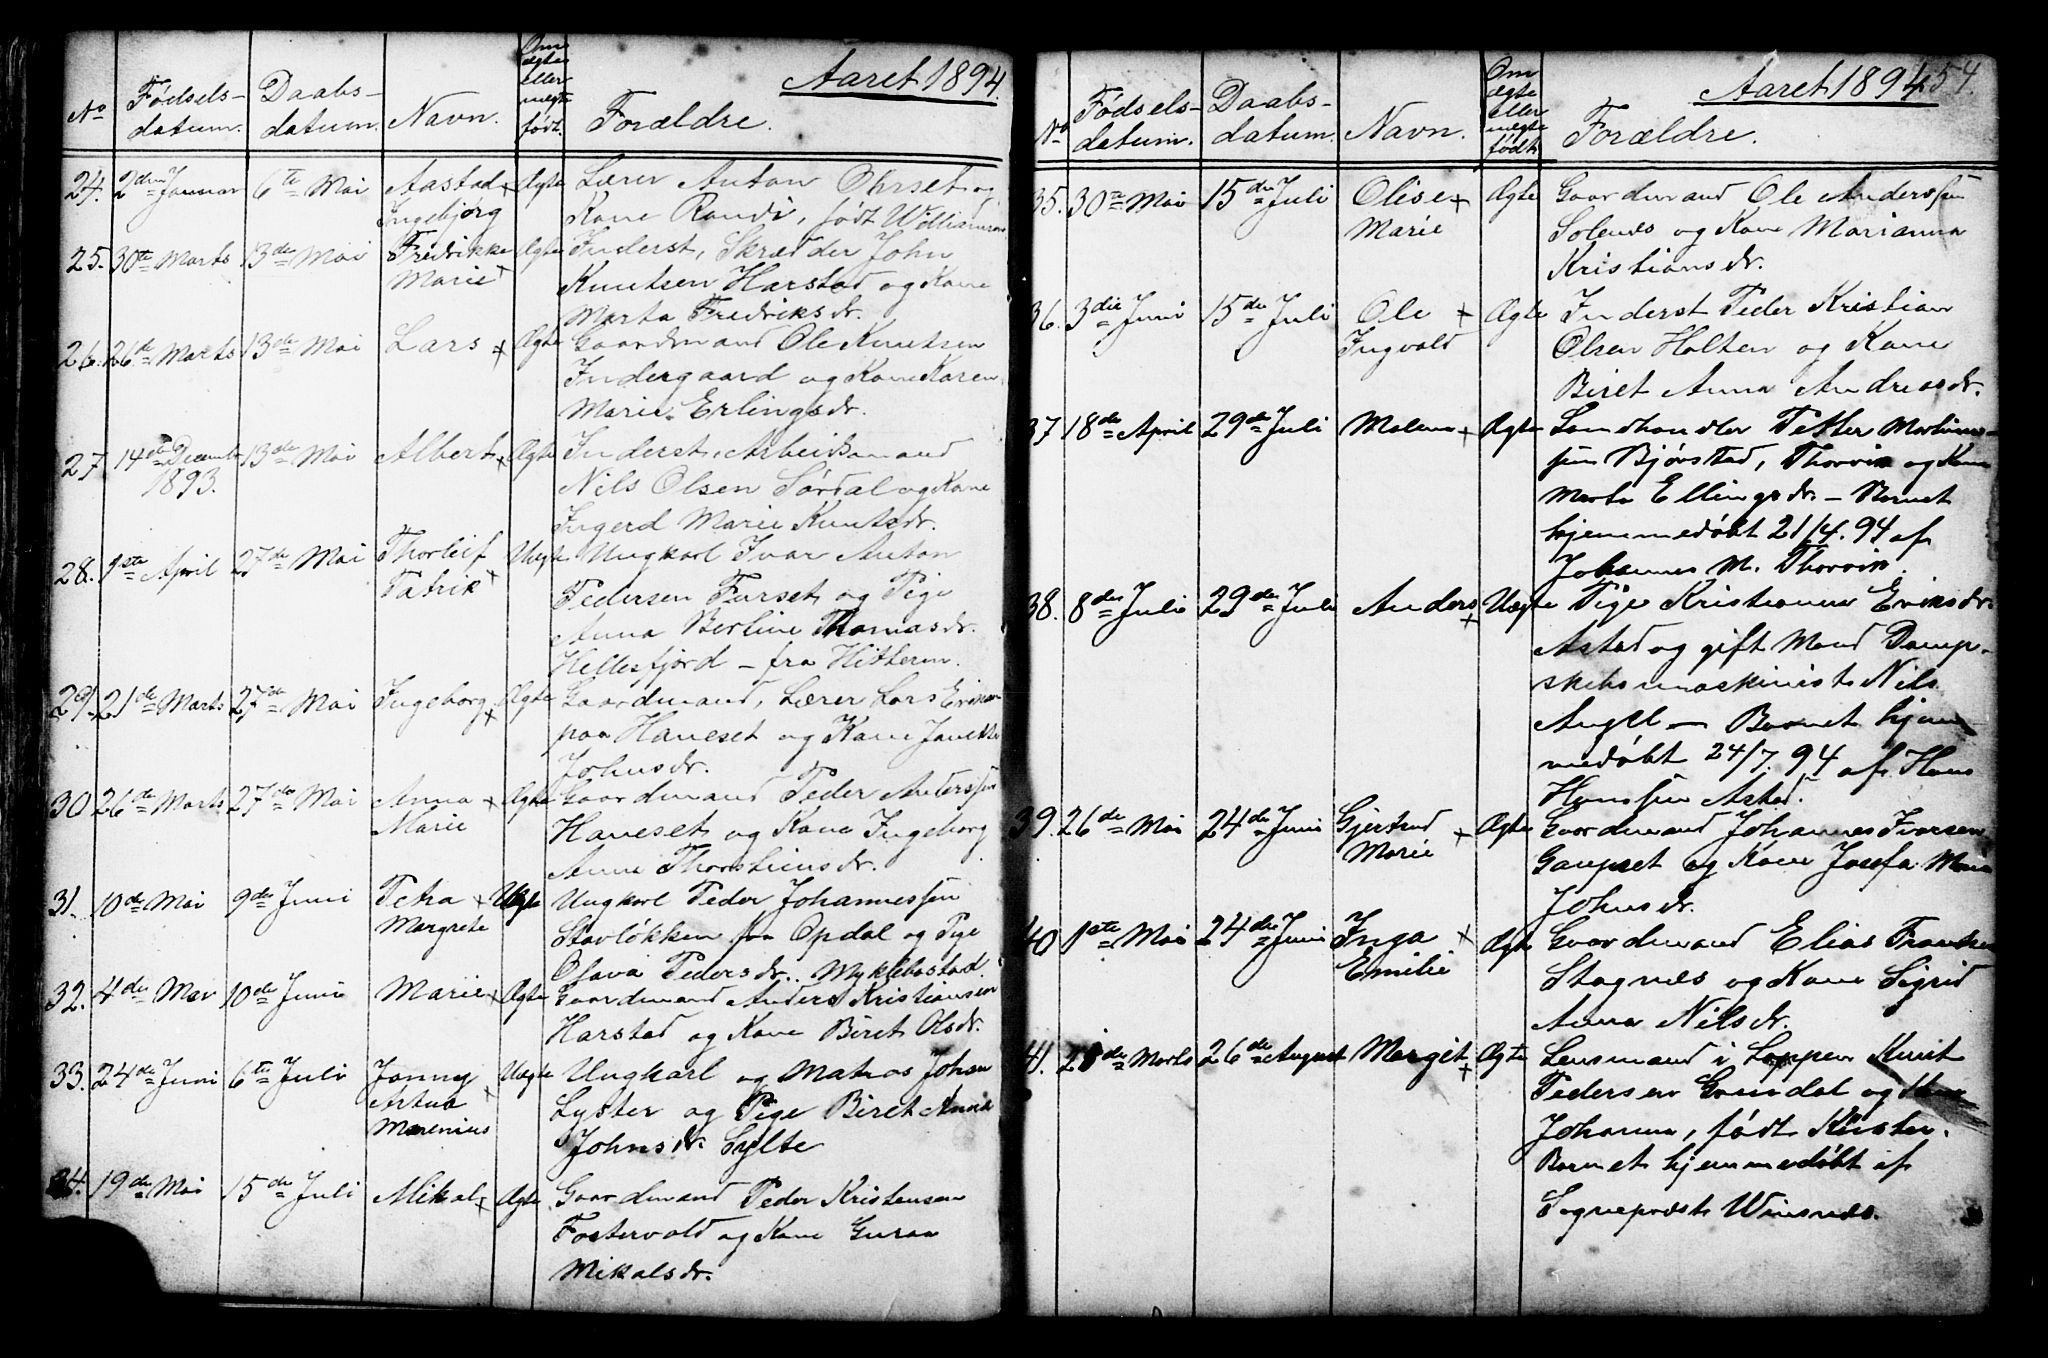 Aaret 1894.
No Fødsels-datum. Daabs-datum. Navn. Om ægte eller uægte født. Forældre.
24. 2den Januar 6te Mai Aastad Ægte Lærer Anton Ohrset og
Ingebjørg Kone Randi, født Williamsen
25. 30te Marts 13de Mai Fredrikke Ægte Inderst, Skrædder John
Marie Knutsen Harstad og Kone
Marta Fredriksdr.
26. 26de Marts 13de Mai Lars Ægte Gaardmand Ole Knutsen
Indergaard og Kone Karen
Marie Erlingsdr.
27. 14de Decemb. 13de Mai Albert Ægte Inderst, Arbeidsmand
1893. Nils Olsen Sørdal og Kone
Ingerd Marie Knutsdr.
28. 1ste April 27de Mai Thorleif Uægte Ungkarl Ivar Anton
Patrik Pedersen Furset og Pige
Anna Berline Thomasdr.
Hellesfjord – fra Hitteren.
29. 21de Marts 27de Mai Ingeborg Ægte Gaardmand, Lærer Lars Eriksen
paa Haneset og Kone Janikke
Johnsdr.
30. 26de Marts 27de Mai Anna Ægte Gaardmand Peder Anderssen
Marie Haneset og Kone Ingeborg
Anne Thorsteinsdr.
31. 10de Mai 9de Juni Petra Uægte Ungkarl Peder Johannessen
Margrete Stavløkken fra Opdal og Pige
Olava Pedersdr. Myklebostad.
32. 4de Mai 10de Juni Marie Ægte Gaardmand Anders Kristiansen
Harstad og Kone Biret Olsdr.
33. 24de Juni 6te Juli Jonny Uægte Ungkarl og Matros Johan
Artur Lyster og Pige Biret Anna
Marenius Johnsdr Sylte
34. 19de Mai 15de Juli Mikal Ægte Gaardmand Peder Kristensen
Fostervold og Kone Guraa
Mikalsdr.
Aaret 1894. 54.
No Fødsels-datum. Daabs-datum. Navn. Om ægte eller uægte født. Forældre.
35. 30te Mai 15de Juli Olise Ægte Gaardmand Ole Anderssen
Marie Solenes og Kone Marianna
Kristiansdr.
36. 3die Juni 15de Juli Ole Ægte Inderst Peder Kristian
Ingvald Olsen Holten og Kone
Biret Anna Andreasdr.
37. 18de April 29de Juli Malene Ægte Landhandler Petter Martinus-
sen Bjørstad, Thorvik og Kone
Marta Ellingsdr. – Barnet
hjemmedøbt 21/4. 94 af
Johannes M. Thorvik.
38. 8de Juli 29de Juli Anders Uægte Pige Kristianna Eriksdr.
Astad og gift Mand Damp-
skibsmaskinist Nils
Angel – Barnet hjem-
medøbt 24/7. 94 af Hans
Hanssen Astad.
39. 26de Mai 24de Juni Gjertrud Ægte Gaardmand Johannes Ivarsen
Marie Gaupset og Kone Josefa Marie
Johnsdr.
40. 1ste Mai 24de Juni Inga Ægte Gaardmand Elias Frantsen
Emilie Stagnes og Kone Sigrid
Anna Nilsdr.
41. 28de Marts 26de August Margit Ægte Lensmand i Loppen Knut
Pedersen Grindal og Kone
Johanna, født Küster.
Barnet hjemmedøbt af
Sogneprest Winsnes.